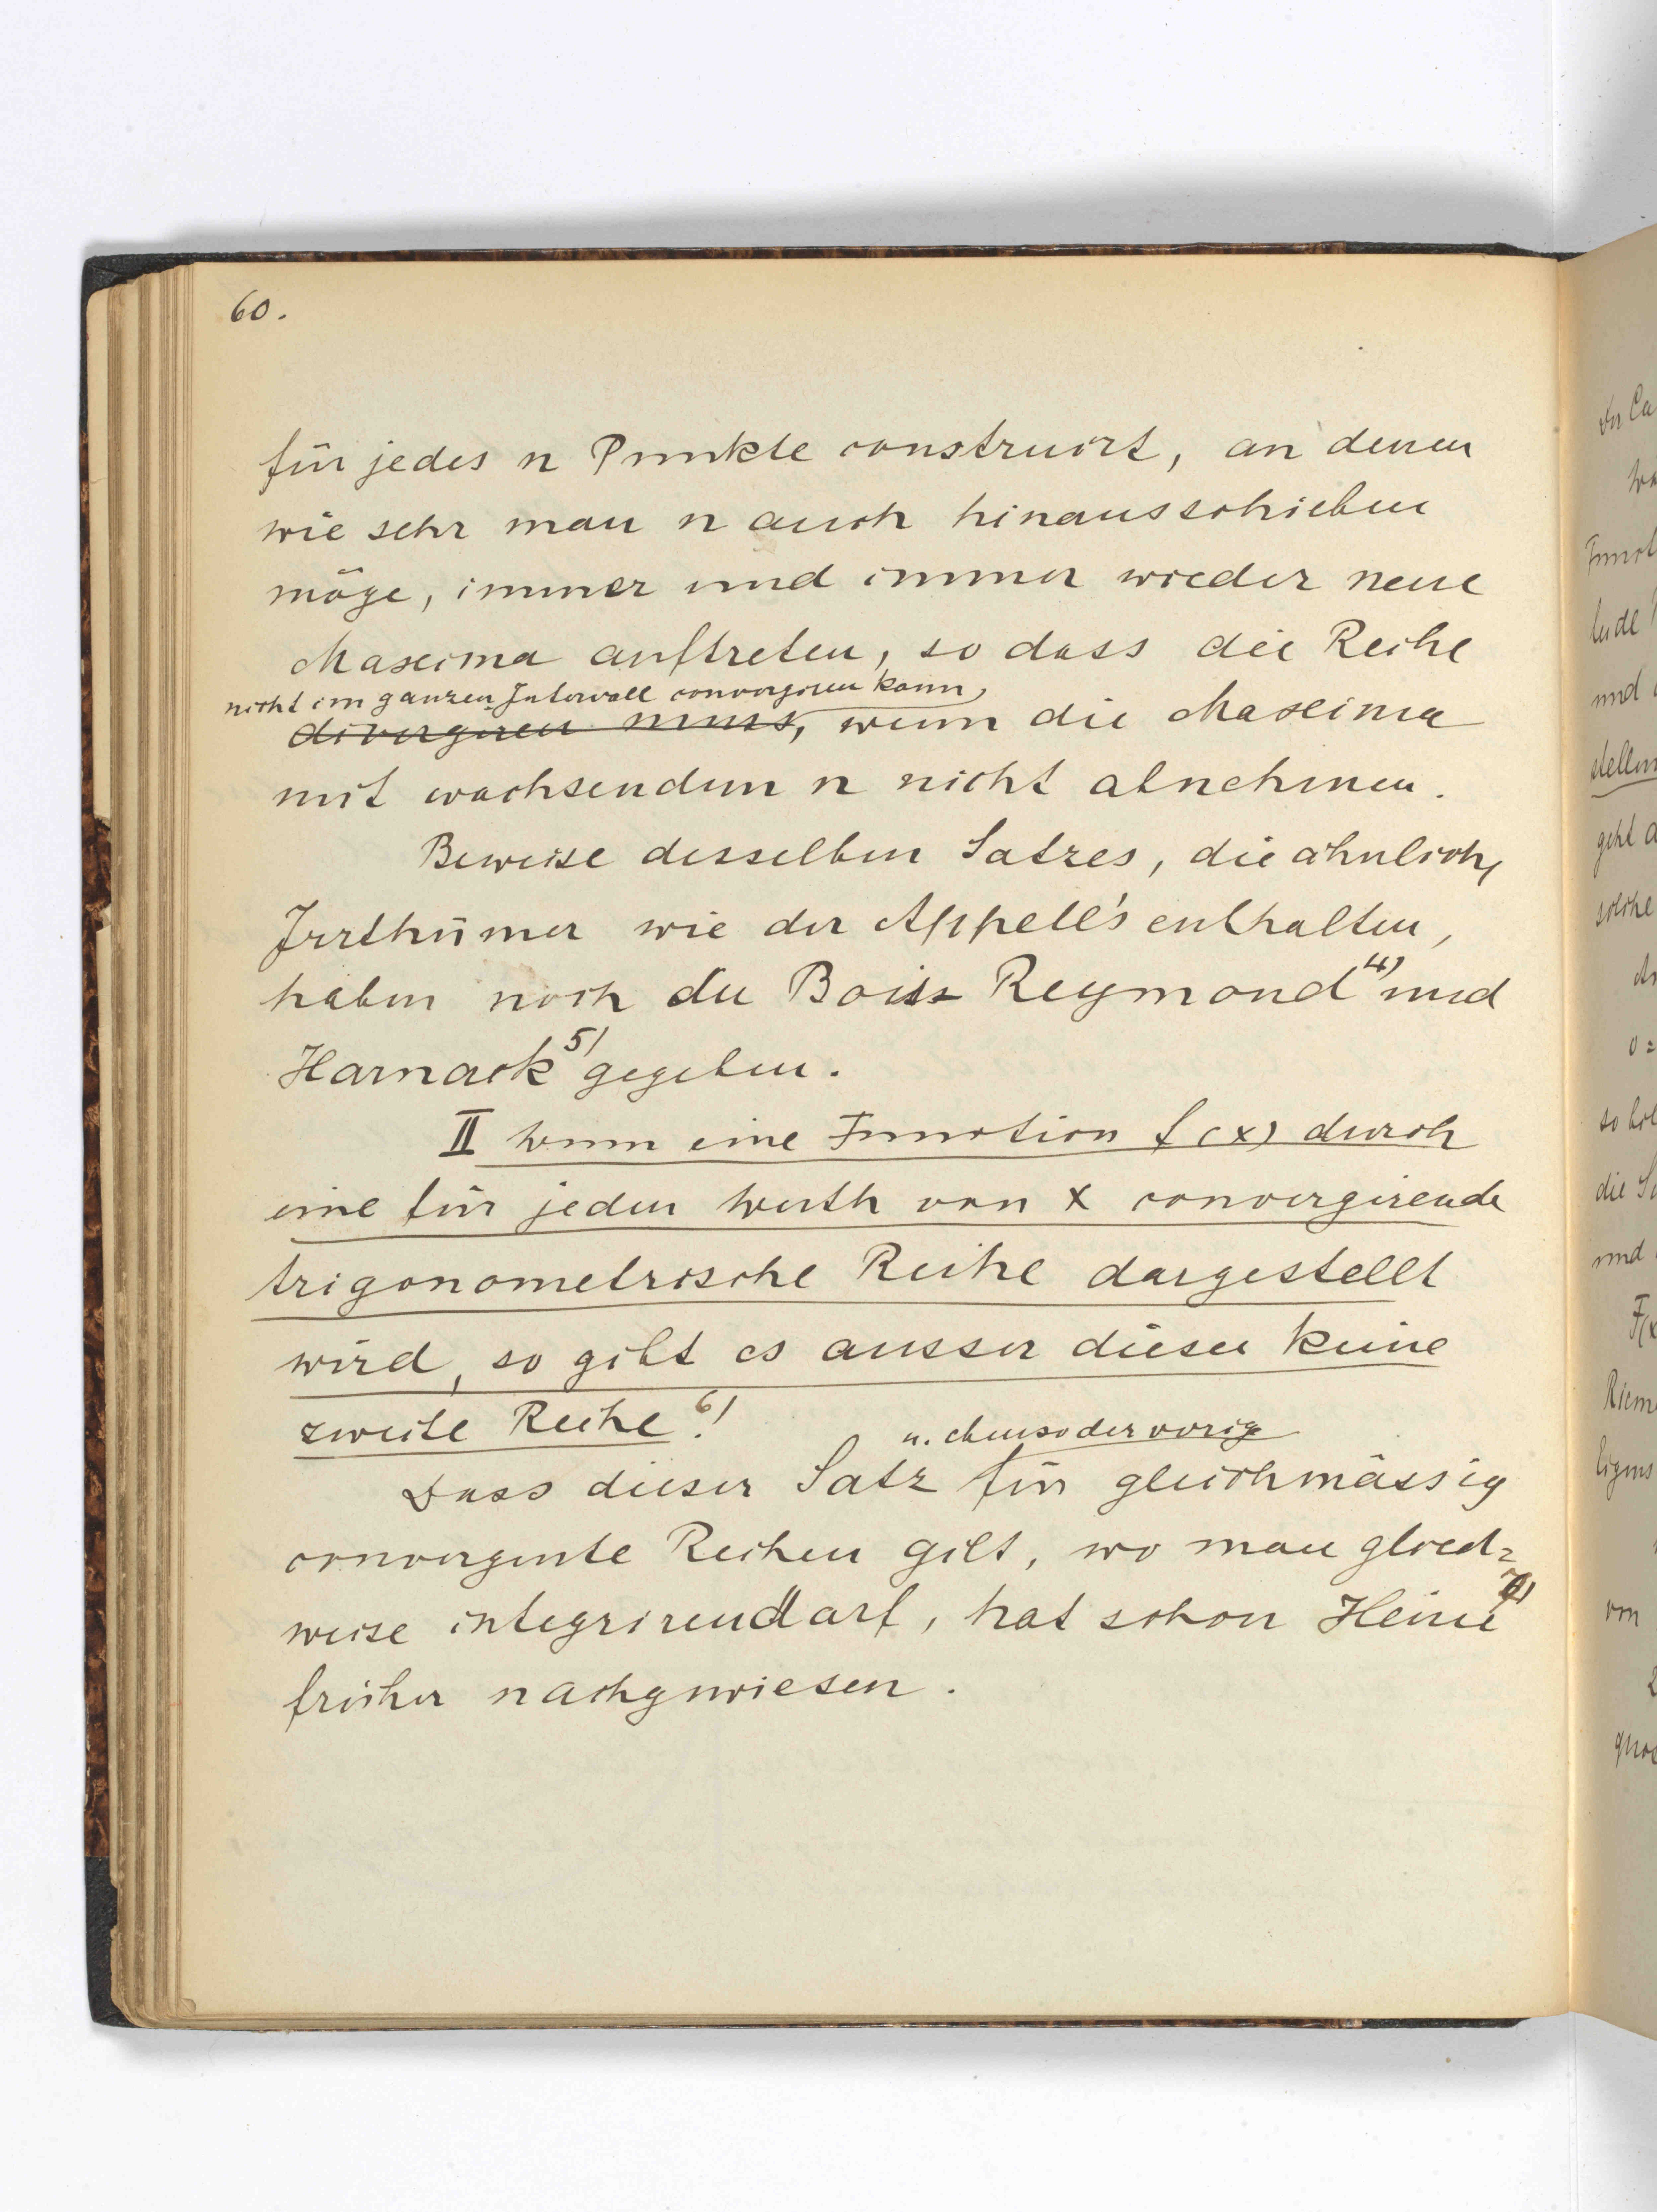 60.
für jedes n Punkte construirt, an denen
wie sehr man n auch hinausschieben
möge, immer und immer wieder neue
Maxima auftreten, so dass die Reihe
nicht im ganzen Intervall convergiren kann,
divergiren muss, wenn die Maxima
mit wachsendem n nicht abnehmen.
Beweise desselben Satzes, die ähnliche
Irrthümer wie der Appell's enthalten,
haben noch du Bois-Reymond 4) und
Harnack 5) gegeben.
II Wenn eine Function f(x) durch
eine für jeden Werth von x convergirende
trigonometrische Reihe dargestellt
wird, so gibt es ausser dieser keine
zweite Reihe 6).
u. ebenso der vorige
Dass dieser Satz für gleichmässig
convergente Reihen gilt, wo man glied=
weise integriren darf, hat schon Heine 7)
früher nachgewiesen.